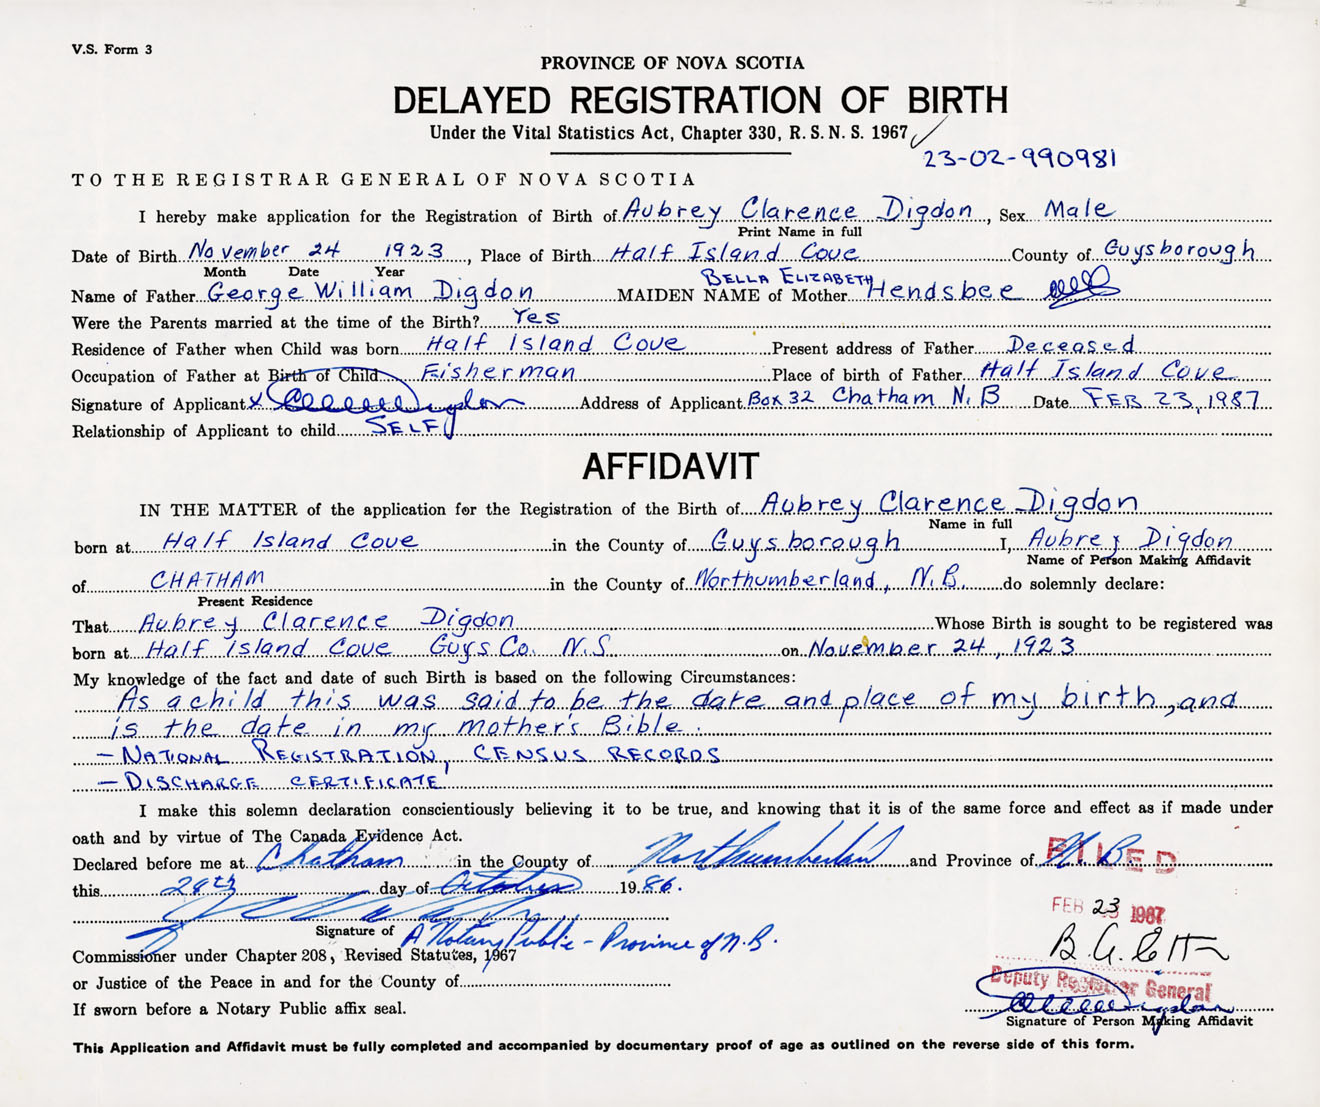 V.S. Form 3
PROVINCE OF NOVA SCOTIA
DELAYED REGISTRATION OF BIRTH
Under the Vital Statistics Act, Chapter 330, R. S. N. S. 1967
23-02-990981
TO THE REGISTRAR GENERAL OF NOVA SCOTIA
I hereby make application for the Registration of Birth of Aubrey Clarence Digdon, Sex Male
Print Name in full
Date of Birth November 24 1923, Place of Birth Half Island Cove County of Guysborough
Month Date Year
BELLA ELIZABETH
Name of Father George William Digdon MAIDEN NAME of Mother Hendsbee
Were the Parents married at the time of the Birth? Yes
Residence of Father when Child was born Half Island Cove Present address of Father Deceased
Occupation of Father at Birth of Child Fisherman Place of birth of Father Half Island Cove
Signature of Applicant X Digdon Address of Applicant Box 32 Chatham N.B Date FEB 23, 1987
Relationship of Applicant to child SELF
AFFIDAVIT
IN THE MATTER of the application for the Registration of the Birth of Aubrey Clarence Digdon
Name in full
born at Half Island Cove in the County of Guysborough I, Aubrey Digdon
Name of Person Making Affidavit
of CHATHAM in the County of Northumberland, N.B. do solemnly declare:
Present Residence
That Aubrey Clarence Digdon Whose Birth is sought to be registered was
born at Half Island Cove Guys Co. N.S on November 24, 1923
My knowledge of the fact and date of such Birth is based on the following Circumstances:
As a child this was said to be the date and place of my birth, and
is the date in my mother's Bible.
- NATIONAL REGISTRATION, CENSUS RECORDS
- DISCHARGE CERTIFICATE
I make this solemn declaration conscientiously believing it to be true, and knowing that it is of the same force and effect as if made under
oath and by virtue of The Canada Evidence Act.
Declared before me at Chatham in the County of Northumberland and Province of N.B.
FILED
this 28th day of October 1986.
FEB 23 1987
Signature of A Notary Public - Province of N.B.
Commissioner under Chapter 208, Revised Statutes, 1967
or Justice of the Peace in and for the County of
Deputy Registrar General
If sworn before a Notary Public affix seal.
Digdon
Signature of Person Making Affidavit
This Application and Affidavit must be fully completed and accompanied by documentary proof of age as outlined on the reverse side of this form.